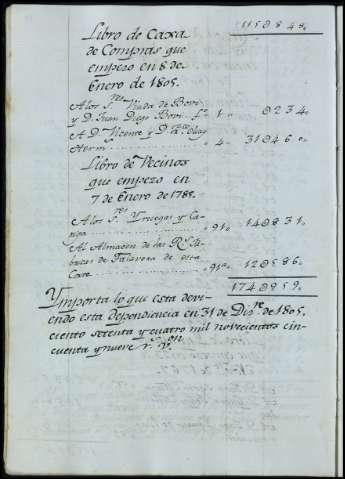 115@848„
Libro de Caxa
de Compras que
empezo en 8 de
Enero de 1805.
A los S.res Viuda de Bori
y D. Juan Diego Bori. F.o 1„ @234„
A D. Vicente y D.
Herm „ 4„ 31@460„
Libro de Vecinos
que empezo en
7 de Enero de 1788.
A los S.res Yruegas y Ca-
„ 91„ 14@831„
Al Almacen de las R.s Fa-
bricas de Talavera de esta
Corte „ 91„ 12@586„
174@959„
Y importa lo que esta devi-
endo esta dependiencia en 31 de Diz.re de 1805,
ciento setenta y cuatro mil novecientos cin-
cuenta y nueve r.s v.on